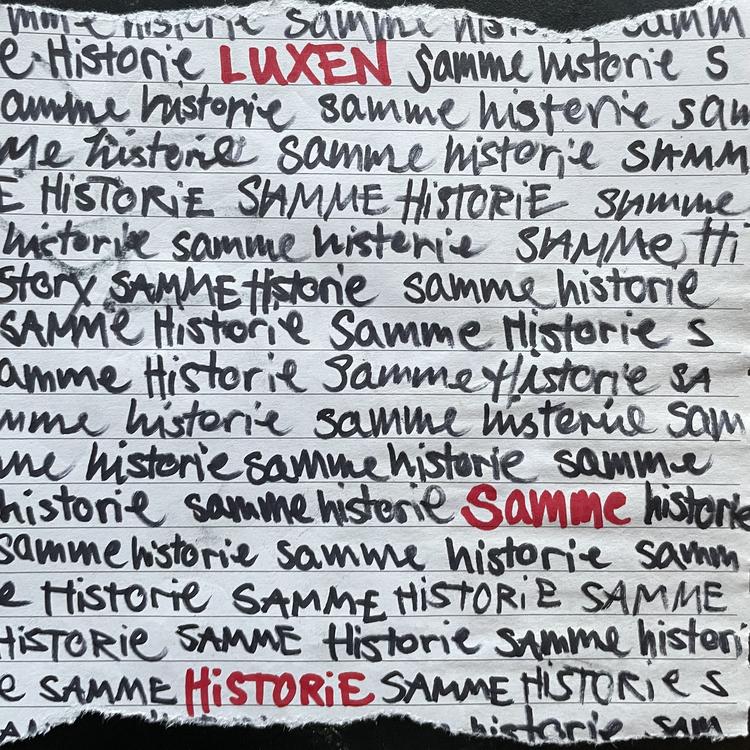 mme historie samme historie samm
e Historie LUXEN samme historie s
amme historie samme historie sam
me historie samme historie SAMM
E HISTORIE SAMME HISTORIE samme
historie samme historie SAMMe Hi
story SAMME Historie samme historie
SAMMe Historie Samme Historie s
amme Historie Samme Historie SA
mme historie samme historie Sam
me historie samme historie samme
historie samme historie Samme historie
samme historie samme historie samm
e Historie SAMME HISTORiE SAMME
HiSTORie SAMME Historie Samme histori
e SAMME HiSTORiE SAMME HISTORIe s
historie sam